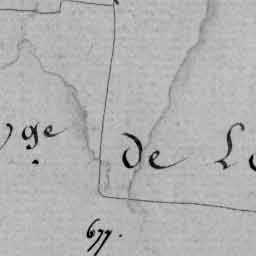 ge de Le
677.